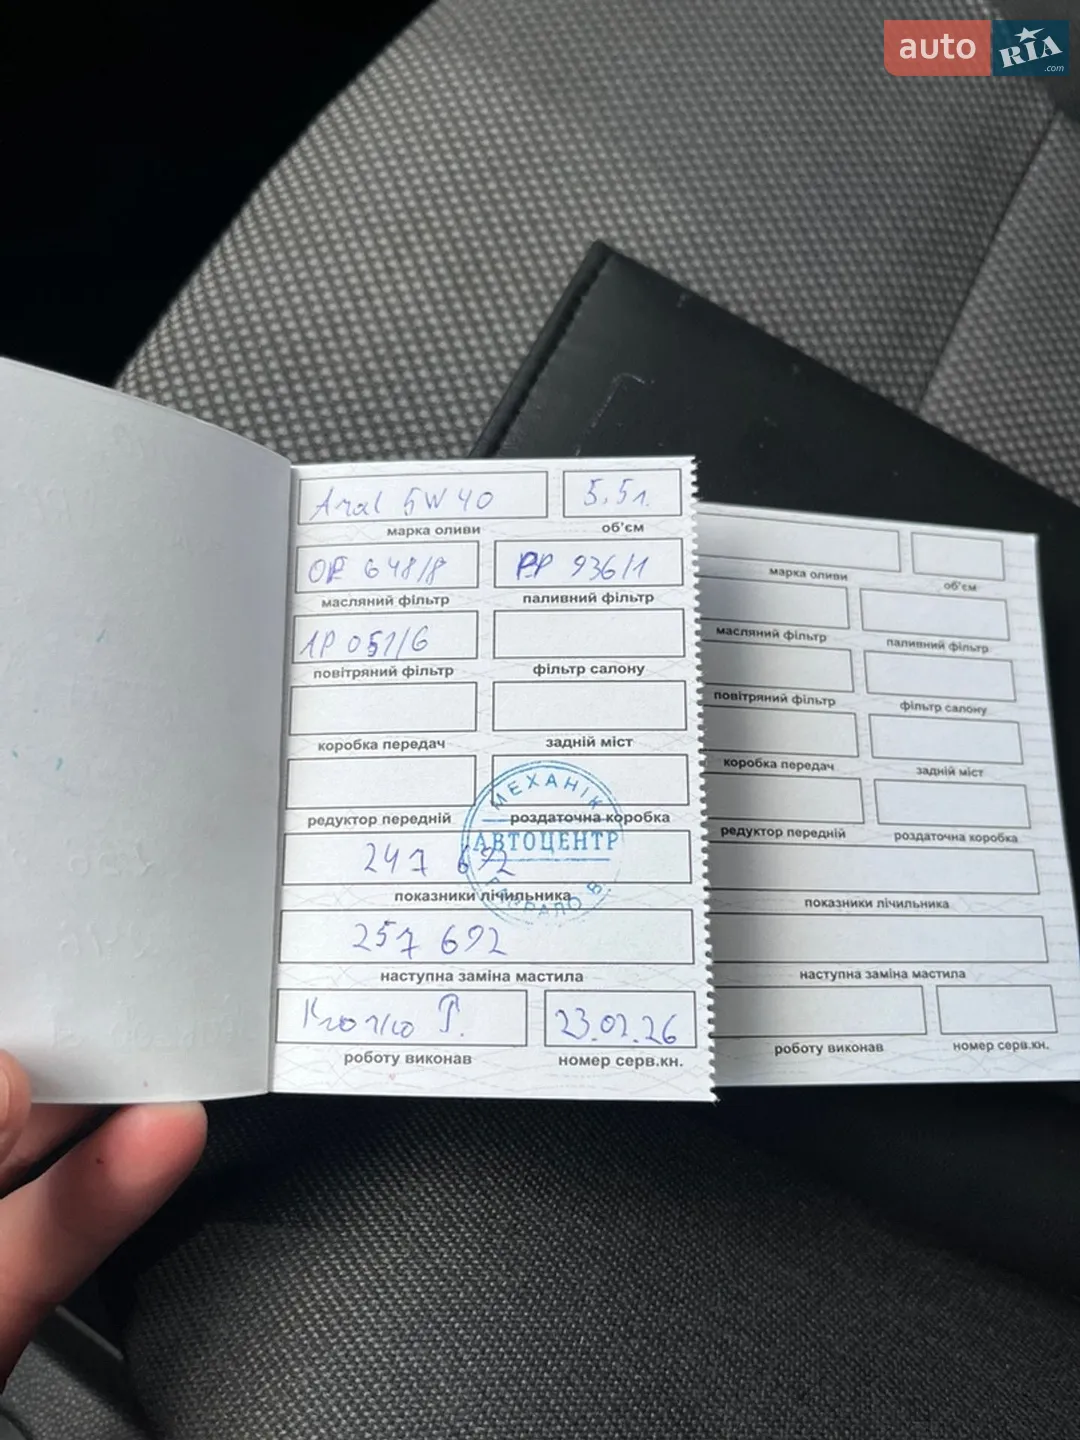 auto RIA .com
Aral 5W40 5,5л.
марка оливи об'єм
OE 648/8 PP 936/1
масляний фільтр паливний фільтр
AP 051/6
повітряний фільтр фільтр салону
коробка передач задній міст
МЕХАНІК
редуктор передній роздаточна коробка
АВТОЦЕНТР
247 692
показники лічильника
257 692
наступна заміна мастила
23.02.26
роботу виконав номер серв.кн.
марка оливи об'єм
масляний фільтр паливний фільтр
повітряний фільтр фільтр салону
коробка передач задній міст
редуктор передній роздаточна коробка
показники лічильника
наступна заміна мастила
роботу виконав номер серв.кн.